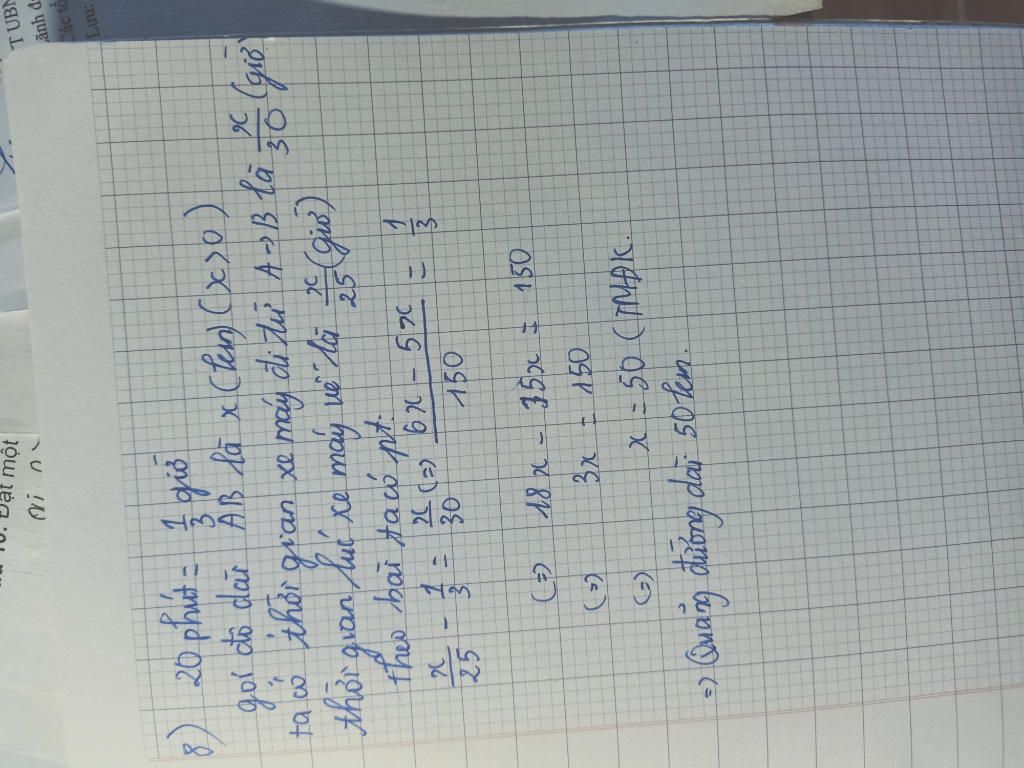 T UBN
Các tổ
Lưu:
Đặt một
8) 20 phút = 1/3 giờ
gọi độ dài AB là x (km) (x>0)
ta có thời gian xe máy đi từ A->B là x/30 (giờ)
thời gian lúc xe máy về là x/25 (giờ)
theo bài ta có pt.
x/25 - 1/3 = x/30 (=) (6x - 5x)/150 = 1/3
(=) 18x - 15x = 150
(=) 3x = 150
(=) x = 50 (TMĐK.
=) Quảng đường dài 50 km.